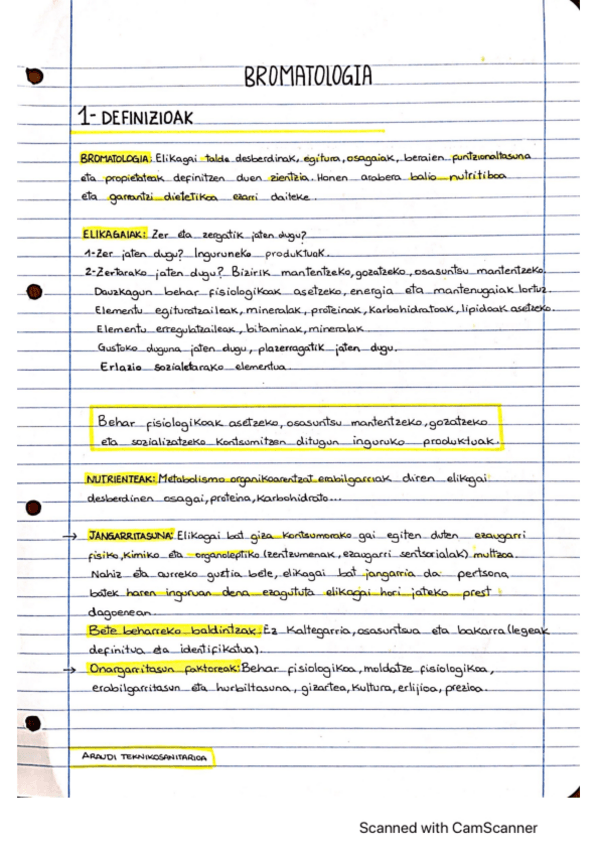 BROMATOLOGIA
1- DEFINIZIOAK
BROMATOLOGIA: Elikagai talde desberdinak, egitura, osagaiak, beraien funtzionaltasuna
eta propietateak definitzen duen zientzia. Honen arabera balio nutritiboa
eta garrantzi dietetikoa ezarri daiteke.
ELIKAGAIAK: Zer eta zergatik jaten dugu?
1-Zer jaten dugu? Inguruneko produktuak.
2-Zertarako jaten dugu? Bizirik mantentzeko, gozatzeko, osasuntsu mantentzeko.
Dauzkagun behar fisiologikoak asetzeko, energia eta mantenugaiak lortuz.
Elementu egituratzaileak, mineralak, proteinak, karbohidratoak, lipidoak asetzeko.
Elementu erregulatzaileak, bitaminak, mineralak
Gustoko duguna jaten dugu, plazerragatik jaten dugu.
Erlazio sozialetarako elementua.
Behar fisiologikoak asetzeko, osasuntsu mantentzeko, gozatzeko
eta sozializatzeko kontsumitzen ditugun inguruko produktuak.
NUTRIENTEAK: Metabolismo organikoarentzat erabilgarriak diren elikagai
desberdinen osagai, proteina, karbohidrato...
→ JANGARRITASUNA: Elikagai bat giza kontsumorako gai egiten duten ezaugarri
fisiko, kimiko eta organoleptiko (zentzumenak, ezaugarri sentsorialak) multzoa.
Nahiz eta aurreko guztia bete, elikagai bat jangarria da pertsona
batek haren inguruan dena ezagututa elikagai hori jateko prest
dagoenean.
Bete beharreko baldintzak: Ez kaltegarria, osasuntsua eta bakarra (legeak
definitua eta identifikatua).
→ Onargarritasun faktoreak: Behar fisiologikoa, moldatze fisiologikoa,
erabilgarritasun eta hurbiltasuna, gizartea, kultura, erlijioa, prezioa.
ARAUDI TEKNIKOSANITARIOA
Scanned with CamScanner